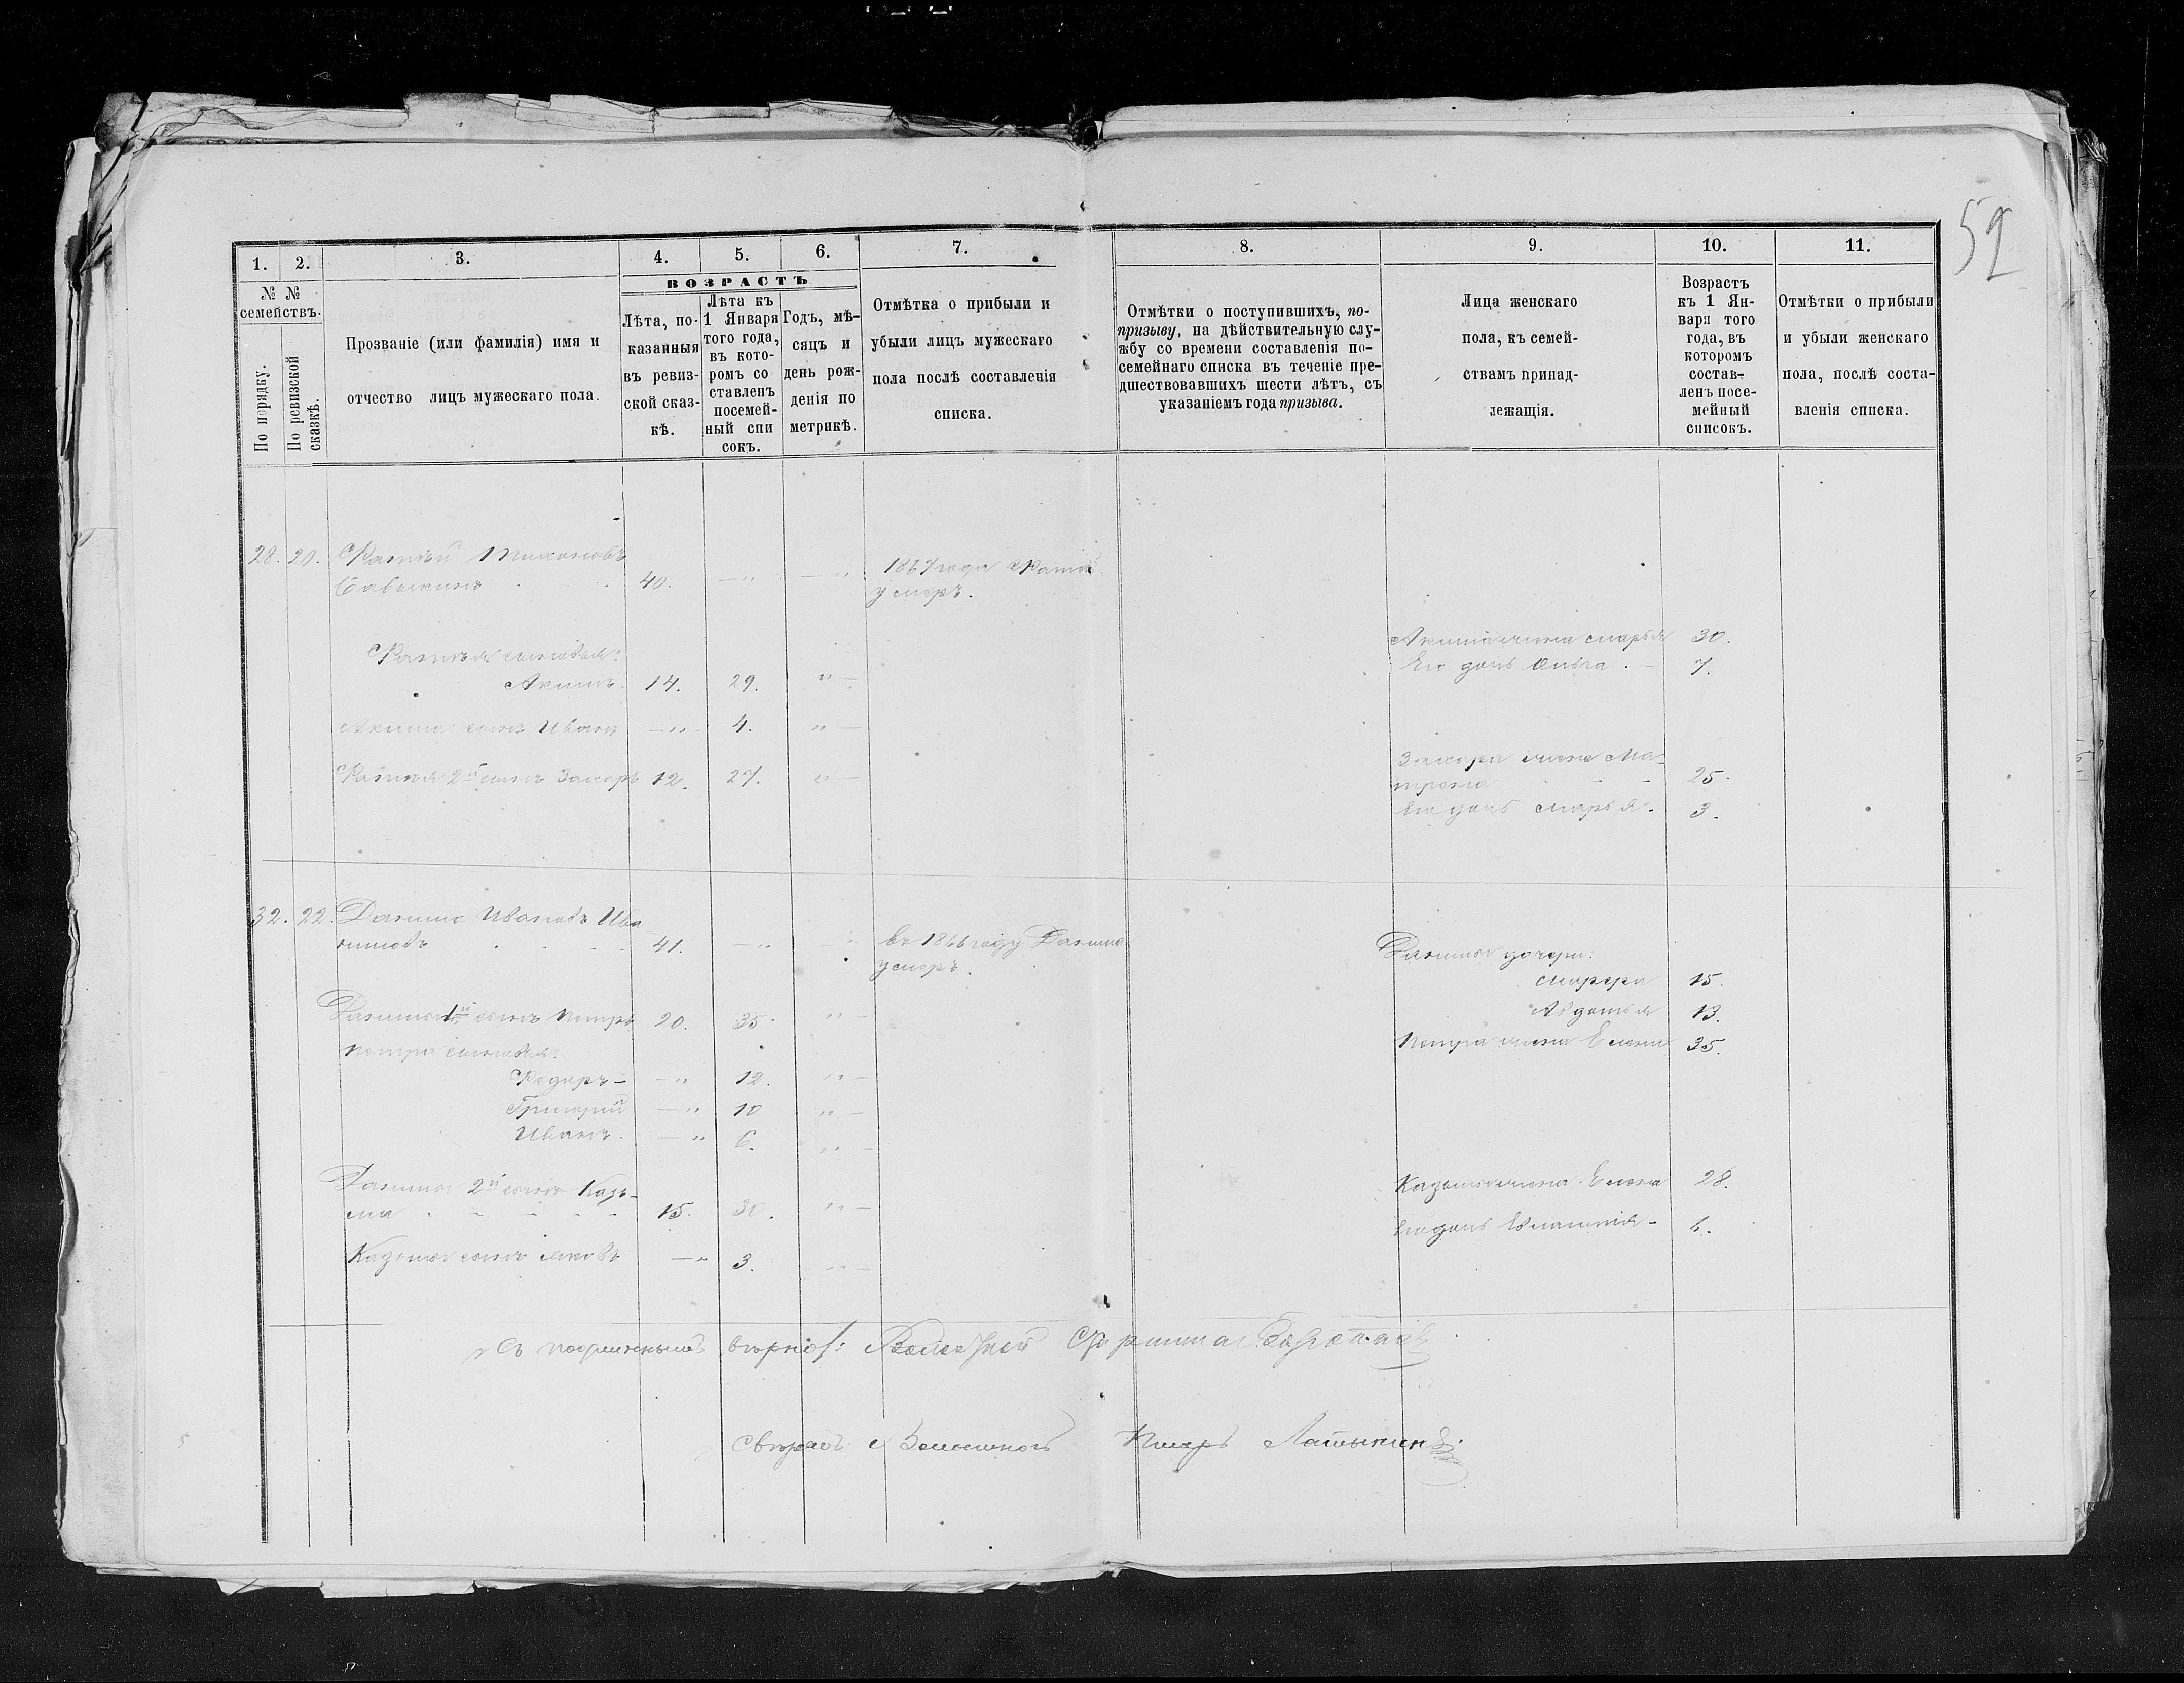 52
1. 2. 3. 4. 5. 6. 7. 8. 9. 10. 11.
№ №
семействъ.
По порядку.
По ревизской
сказкѣ.
Прозваніе (или фамилія) имя и
отчество лицъ мужескаго пола.
ВОЗРАСТЪ
Лѣта, по-
казанныя
въ ревиз-
ской сказ-
кѣ.
Лѣта къ
1 Января
того года,
въ кото-
ромъ со
ставленъ
посемей-
ный спи
сокъ.
Годъ, мѣ-
сяцъ и
день рож-
денія по
метрикѣ.
Отмѣтка о прибыли и
убыли лицъ мужескаго
пола послѣ составленія
списка.
Отмѣтки о поступившихъ, по-
призыву, на дѣйствительную слу-
жбу со времени составленія по-
семейнаго списка въ теченіе пре-
дшествовавшихъ шести лѣтъ, съ
указаніемъ года призыва.
Лица женскаго
пола, къ семей-
ствамъ принад-
лежащія.
Возрастъ
къ 1 Ян-
варя того
года, въ
которомъ
состав-
ленъ посе-
мейный
списокъ.
Отмѣтки о прибыли
и убыли женскаго
пола, послѣ соста-
вленія списка.
28. 20. Тихоновъ
40. — „ — „ 1867 года
умеръ.
сыновья:
Акимъ. 14. 29. „ —
Акима жена Марья 30.
Его дочь Ольга. — 7.
Акима сынъ Иванъ — „ 4. „ —
2й сынъ Захаръ 12. 27. „ —
Захара жена Ма-
трена 25.
Его дочь Марья. 3.
32. 22. Данило Ивановъ Ива
ниновъ 41. — „ „ въ 1866 году Данило
умеръ.
Данилы дочери:
15.
Авдотья 13.
Данилы 1й сынъ Петръ 20. 35. „ —
Петра жена Елена 35.
Петра сыновья:
Федоръ — — „ 12. „ —
Григорій — „ 10 „ —
Иванъ. — „ 6. „ —
Данилы 2й сынъ Козь-
ма 15. 30. „ —
Козьмы жена Елена 28.
Его дочь — 6.
Козьмы сынъ Яковъ — „ 3. „ —
Съ подлиннымъ вѣрно: Волостной Старшина
Свѣрялъ Волостной Писарь Латыкин